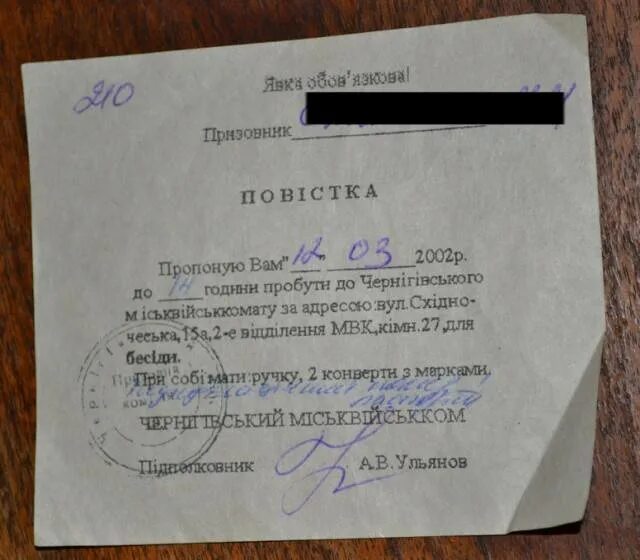 210
Явка обов'язкова!
Призовник
ПОВІСТКА
Пропоную Вам "12" 03 2002р.
до 14 години пробути до Чернігівського
міськвійськкомату за адрессою:вул.Східно-
чеська,15а,2-е відділення МВК,кімн.27,для
бесіди.
При собі мати:ручку, 2 конверти з марками.
ЧЕРНІГІВСЬКИЙ МІСЬКВІЙСЬККОМ
Підполковник А.В.Ульянов